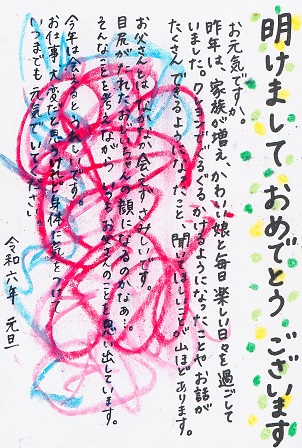 明けまして おめでとう ございます
お元気ですか。
昨年は、家族が増え、かわいい娘と毎日楽しい日々を過ごして
いました。クレヨンでぐるぐるかけるようになったことや お話が
たくさんできるようになったこと、聞いてほしいことが山ほどあります。
お父さんとは、なかなか会えずさみしいです。
目尻がたれたおじいちゃんの顔になるのかなぁ。
そんなことを考えながら いつもお父さんのことを思い出しています。
今年は会えるとうれしいです。
お仕事大変だと思うけれど身体に気をつけて
いつまでも元気でいてください。
令和六年 元旦